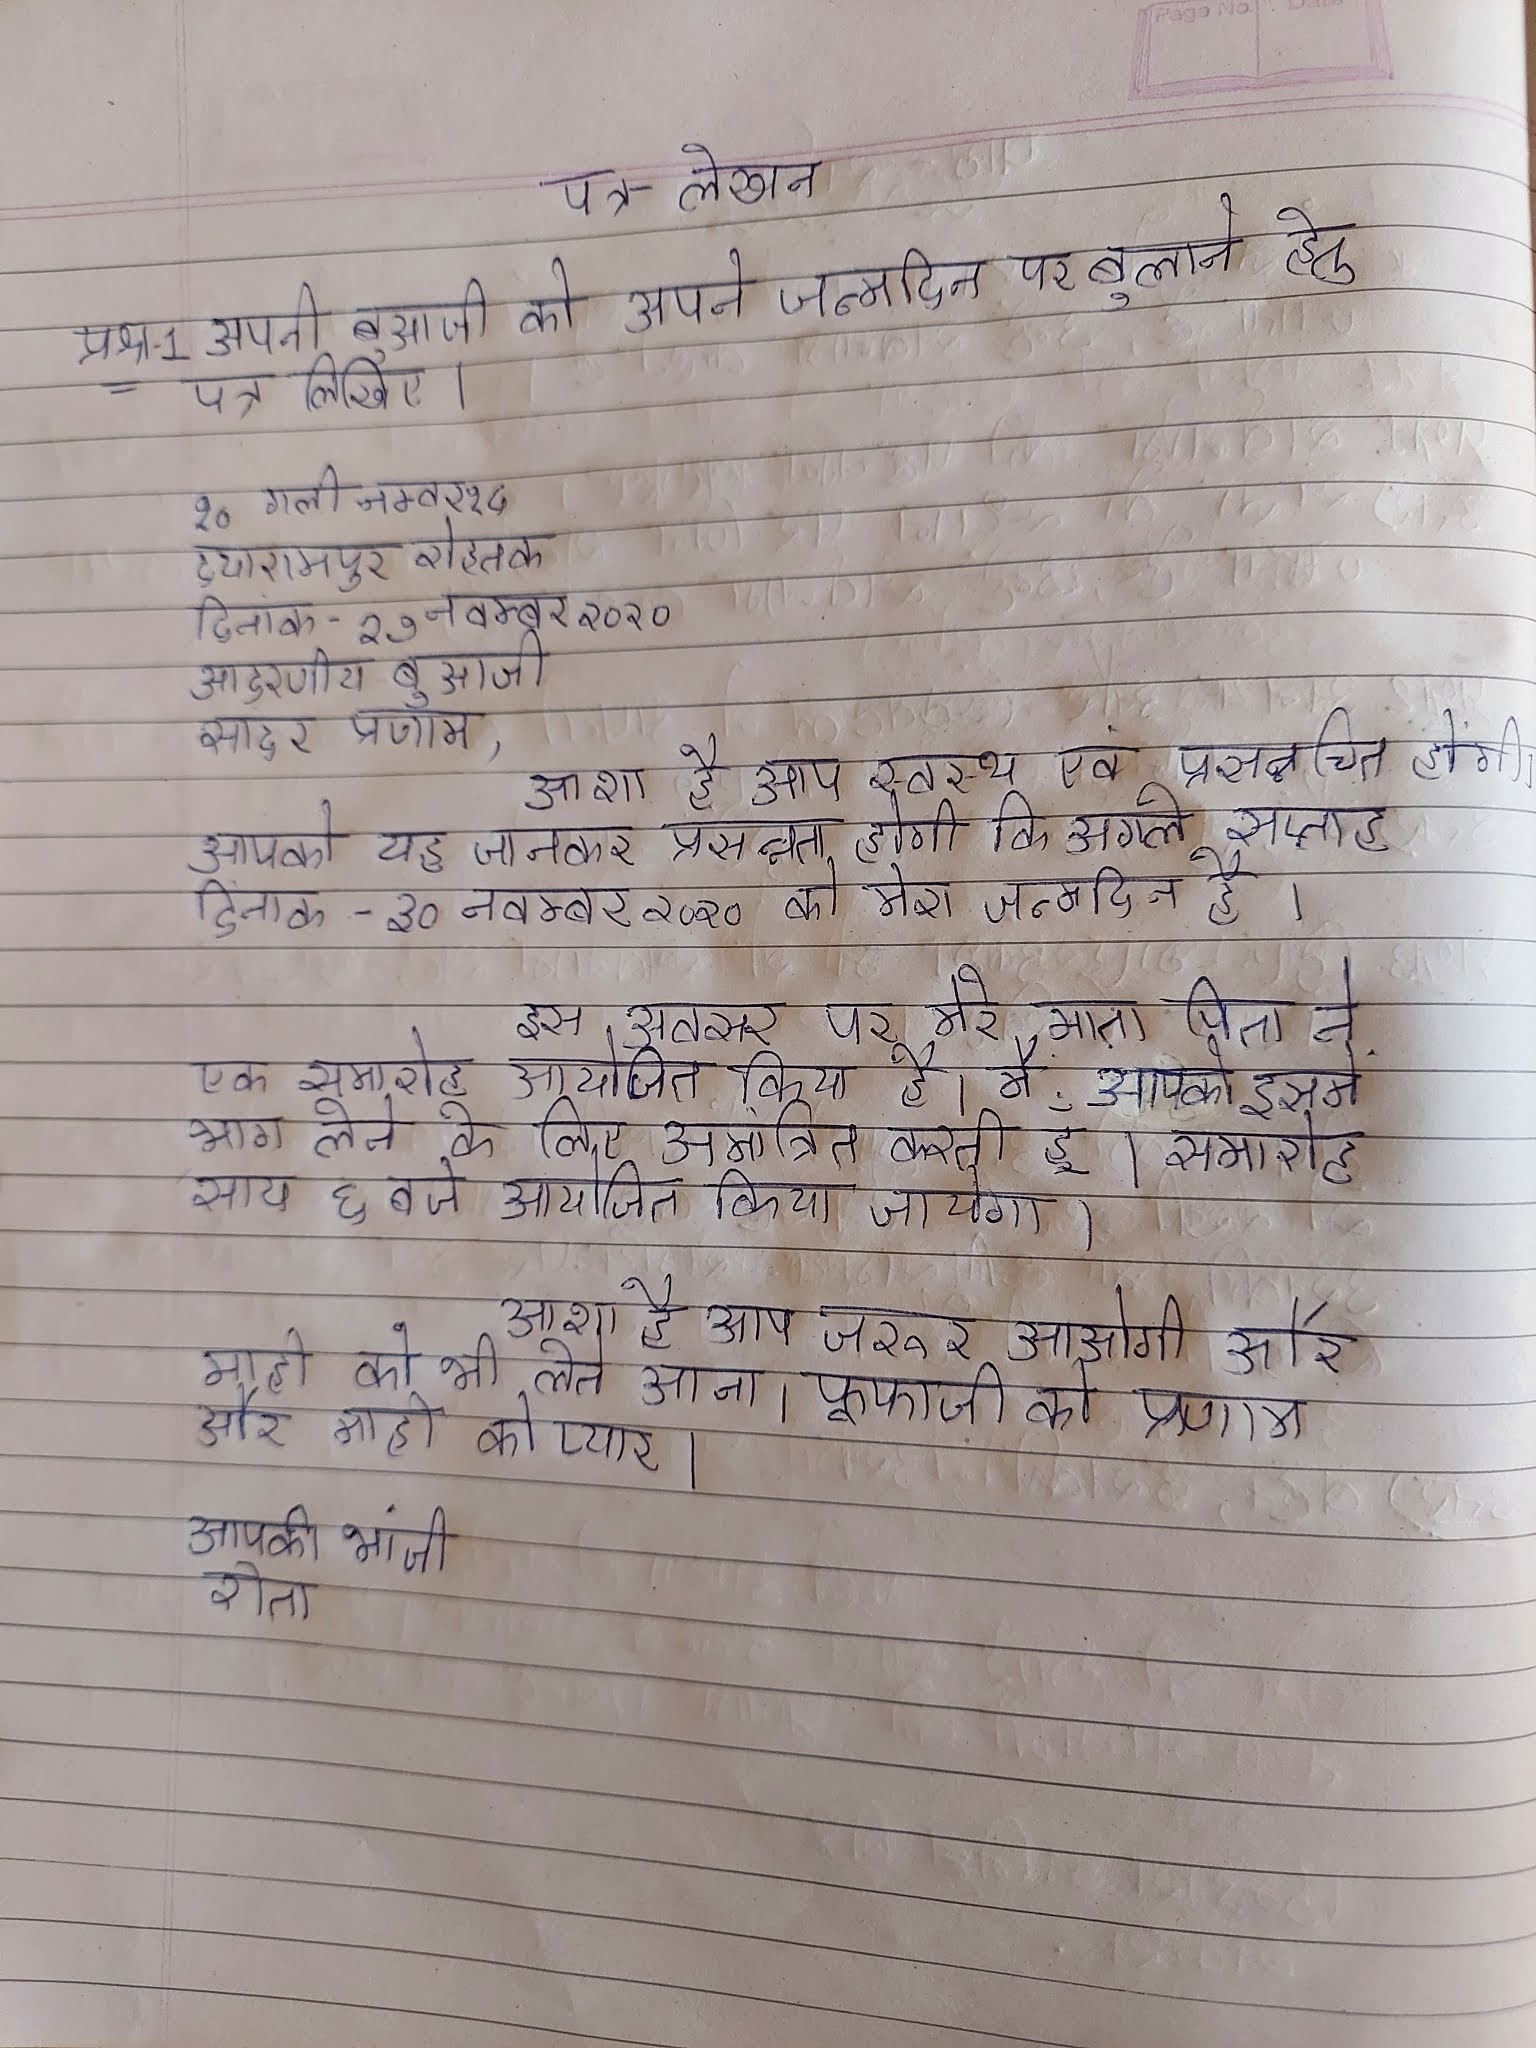 Page No. Date
पत्र-लेखन
प्रश्न-1 अपनी बुआजी को अपने जन्मदिन पर बुलाने हेतु
= पत्र लिखिए।
२० गली नम्बर १८
दयारामपुर रोहतक
दिनांक - २७ नवम्बर २०२०
आदरणीय बुआजी
सादर प्रणाम,
आशा है आप स्वस्थ एवं प्रसन्नचित होंगी।
आपको यह जानकर प्रसन्नता होगी कि अगले सप्ताह
दिनाक - ३० नवम्बर २०२० को मेरा जन्मदिन है ।
इस अवसर पर मेरे माता पिता ने
एक समारोह आयोजित किया है। मैं आपको इसमे
भाग लेने के लिए अमांत्रित करती हूं । समारोह
साय ६ बजे आयोजित किया जायेगा ।
आशा है आप जरूर आओगी और
माही को भी लेते आना। फूफाजी को प्रणाम
और माही को प्यार ।
आपकी भांजी
रीता